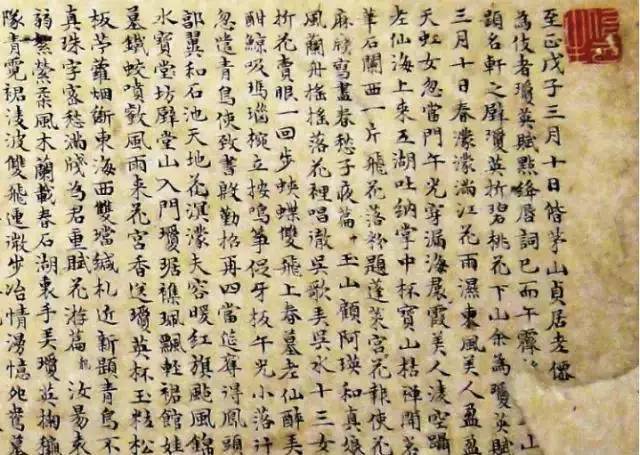 至正戊子三月十日偕茅山貞居老僊
為伎者瓊英賦點絳唇詞已而午霽山
題名軒之壁瓊英折碧桃花下山余為瓊英賦
三月十日春濛濛滿江花雨濕東風美人盈盈
天虹女忽當門午光穿漏海展霞美人淩空躡
老仙海上來五湖吐納掌中杯寶山枯禪開茗
華石闌西一片飛花落粉題蓬萊宮花報使花
麻牋寫盡春愁子夜篇玉山顧阿瑛和真娘
風蘭舟搖搖落花裡唱澈吳歌美吳水十三女
折花賣眼一回步蛺蝶雙飛上春墓老仙醉美
酣鯨吸瑪瑙椀立按鳴箏促牙板午光小落汗
忽遣青鳥使致書殷勤招再四當筵奪得鳳頭
郭翼和石池天地花溟濛夫容暖紅旗颭風錦
水寶堂坊壁堂山入門瓊琚襍珮飄輕裙館娃
墓鐵蛟噴歕風雨來花宮香送瓊英杯玉粒松
板亭蘿烟斷東海西雙璫緘札近新題青鳥不
真珠字密愁滿牋為君重賦花游篇汝昜袁
弱絮縈柔風木蘭載春石湖東手美瓊英掬
隊青霓裙淩波雙飛連步冶情湧憶死鴦墓